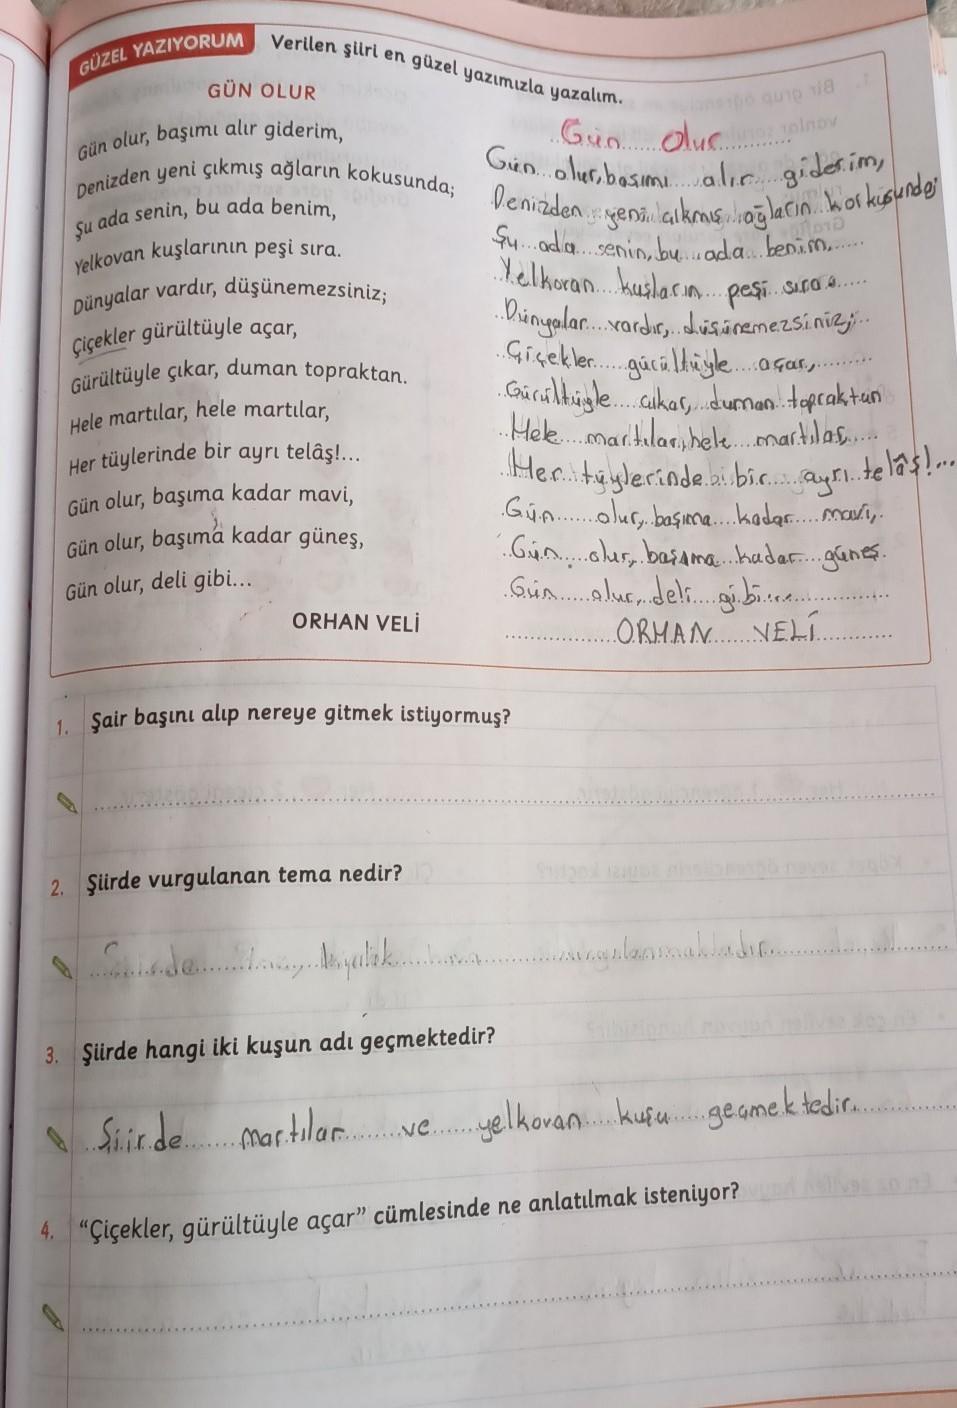 GÜZEL YAZIYORUM
Verilen şiiri en güzel yazımızla yazalım.
GÜN OLUR
Gün olur, başımı alır giderim,
Denizden yeni çıkmış ağların kokusunda;
Şu ada senin, bu ada benim,
Yelkovan kuşlarının peşi sıra.
Dünyalar vardır, düşünemezsiniz;
Çiçekler gürültüyle açar,
Gürültüyle çıkar, duman topraktan.
Hele martılar, hele martılar,
Her tüylerinde bir ayrı telâş!...
Gün olur, başıma kadar mavi,
Gün olur, başıma kadar güneş,
Gün olur, deli gibi...
ORHAN VELİ
Gün olur
Gün olur, başımı alır giderim,
Denizden yeni çıkmış ağların korkusunde;
Şu ada senin, bu ada benim,
Yelkovan kuşların peşi sıra.
Dünyalar vardır, düşünemezsiniz;
Çiçekler gürültüyle açar,
Gürültüyle çıkar, duman topraktan
Hele martılar, hele martılar,
Her tüylerinde bir ayrı telâş!...
Gün olur, başıma kadar mavi,
Gün olur, başıma kadar güneş.
Gün olur, deli gibi...
ORHAN VELİ
1. Şair başını alıp nereye gitmek istiyormuş?
2. Şiirde vurgulanan tema nedir?
Şiirde vurgulanmaktadır.
3. Şiirde hangi iki kuşun adı geçmektedir?
Şiirde martılar ve yelkovan kuşu geçmektedir.
4. "Çiçekler, gürültüyle açar" cümlesinde ne anlatılmak isteniyor?